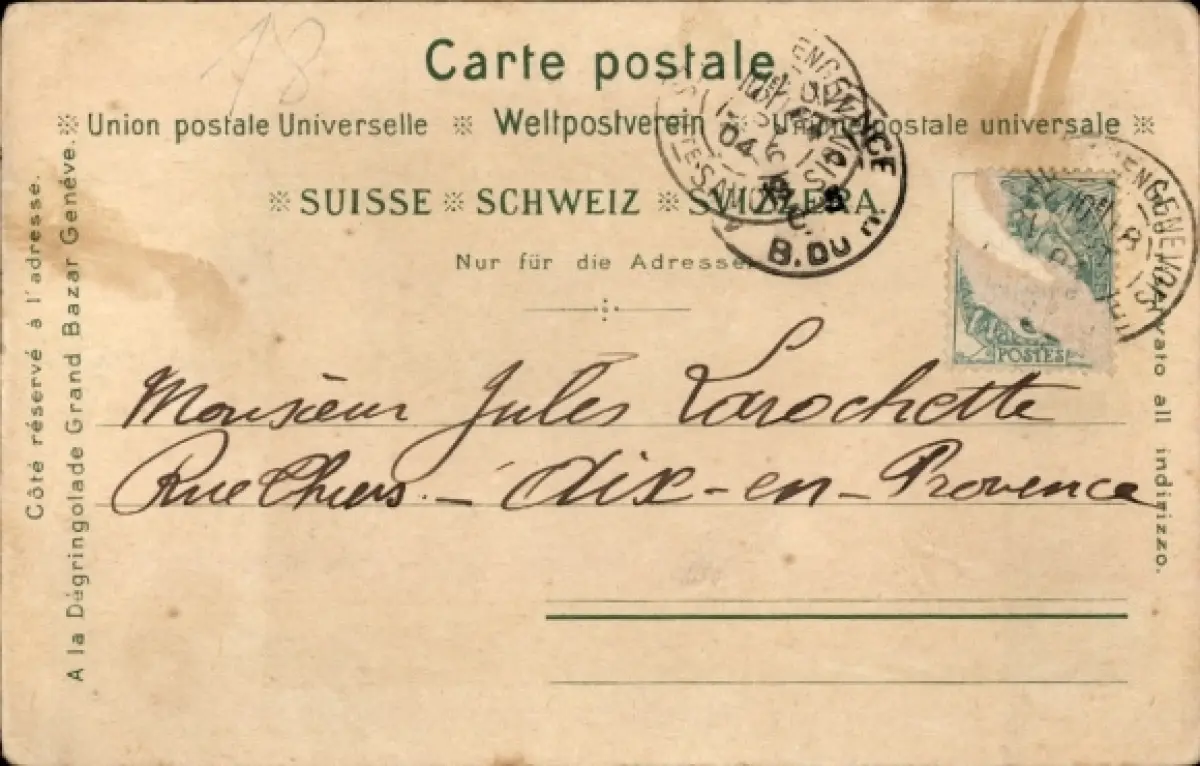 18
Carte postale
Union postale Universelle ※ Weltpostverein ※ Unione postale universale
SUISSE ※ SCHWEIZ ※ SVIZZERA
Nur für die Adresse
Côté réservé à l'adresse.
A la Dégringolade Grand Bazar Genève.
B. DU R.
04
POSTES
Monsieur Jules Larochette
Rue Thiers – Aix-en-Provence
all indirizzo.